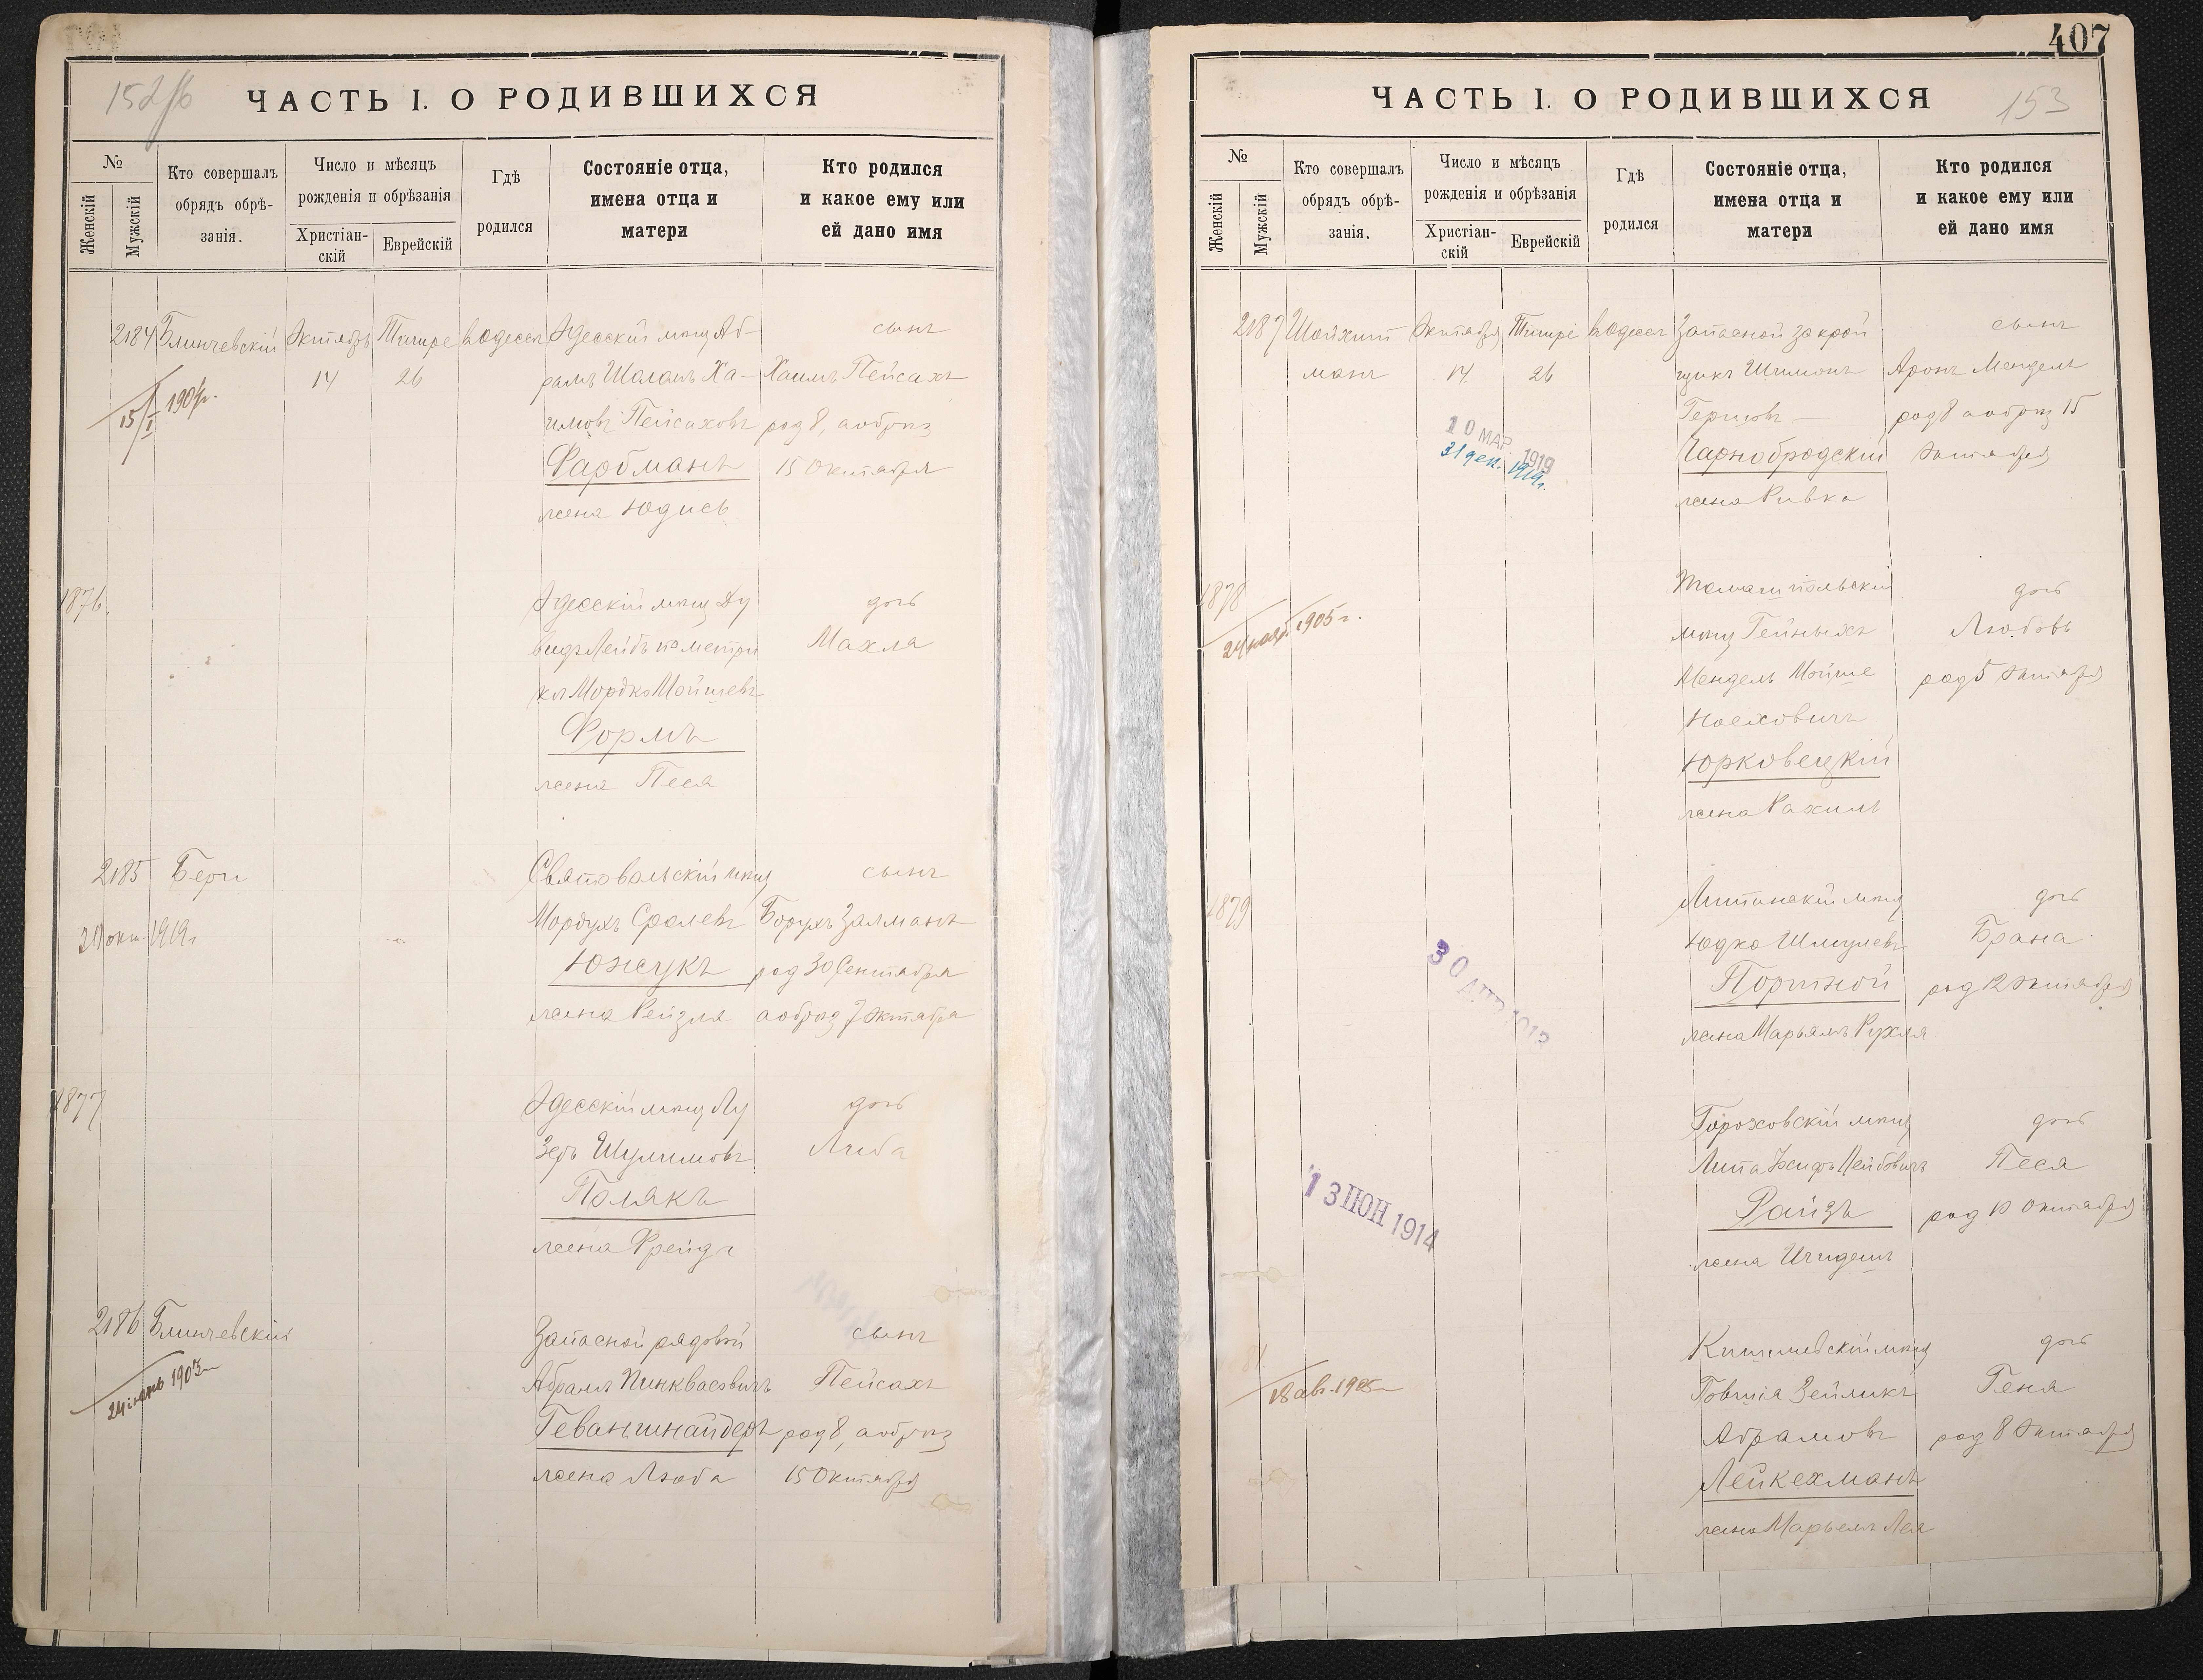 152/б
ЧАСТЬ I. О РОДИВШИХСЯ
№
Женскій
Мужскій
Кто совершалъ
обрядъ обрѣ-
занія.
Число и мѣсяцъ
рожденія и обрѣзанія
Христіан-
скій
Еврейскій
Гдѣ
родился
Состояніе отца,
имена отца и
матери
Кто родился
и какое ему или
ей дано имя
2184 Блинчевскій Октябрь Тишре в Одессѣ Одесскій мѣщ Аб-
рамъ Шаланъ Ха-
имовъ Пейсаховъ
Фарбманъ
жена Юдись
14 26
сынъ
Хаимъ Пейсахъ
род 8, а обрѣз
15 Октября
15/I 190
1876
Одесскій мѣщ Ду
видъ Лейбъ по метри
кѣ Мордко Мойшевъ
Формъ
жена Песя
дочь
Махла
2185 Бери
Мордухъ Сролевъ
Южукъ
жена Рейзля
сынъ
Борухъ Залманъ
род 30 Сентября
а обрѣз 7 Октября
окт. 1919г
1877
Одесскій мѣщ Лу
зеръ Шулимовъ
Полякъ
жена Фрейда
дочь
Либа
2186 Блинчевскій
Запасной рядовой
Абрамъ Пинквасовичъ
Геваншнайдеръ
жена Люба
сынъ
Пейсахъ
род 8, а обрѣз
15 Октября
407
ЧАСТЬ I. О РОДИВШИХСЯ
153
№
Женскій
Мужскій
Кто совершалъ
обрядъ обрѣ-
занія.
Число и мѣсяцъ
рожденія и обрѣзанія
Христіан-
скій
Еврейскій
Гдѣ
родился
Состояніе отца,
имена отца и
матери
Кто родился
и какое ему или
ей дано имя
2187 Шойхит
манъ
Октября Тишрі в Одессѣ
14 26
Запасной закрой
щикъ Шимонъ
Гершовъ
Чарнобродскій
жена Ривка
сынъ
Аронъ Мендель
род 8 а обрѣз 15
Октября
10 МАР. 1919
31 дек. 1919г.
1878
мѣщ Гейныхъ
Мендель Мойше
Ноеховичъ
Юрковецкій
жена Рахиль
дочь
Любовь
род 5 Октября
24 нояб. 1905 г.
1879
Литинскій мѣщ
Юдко Шмулевъ
Портной
жена Марьямъ Рухля
дочь
Брана
род 12 Октября
30 АПР 1913
Гороховскій мѣщ
Липа Іосифъ Лейбовичъ
Райзъ
жена
дочь
Песя
род 10 Октября
13 ІЮН 1914
Кишиневскій мѣщ
Говшія Зейликъ
Абрамовъ
Лейкехманъ
жена Марьемъ Лея
дочь
Геня
род 8 Октября
18 авг. 1905